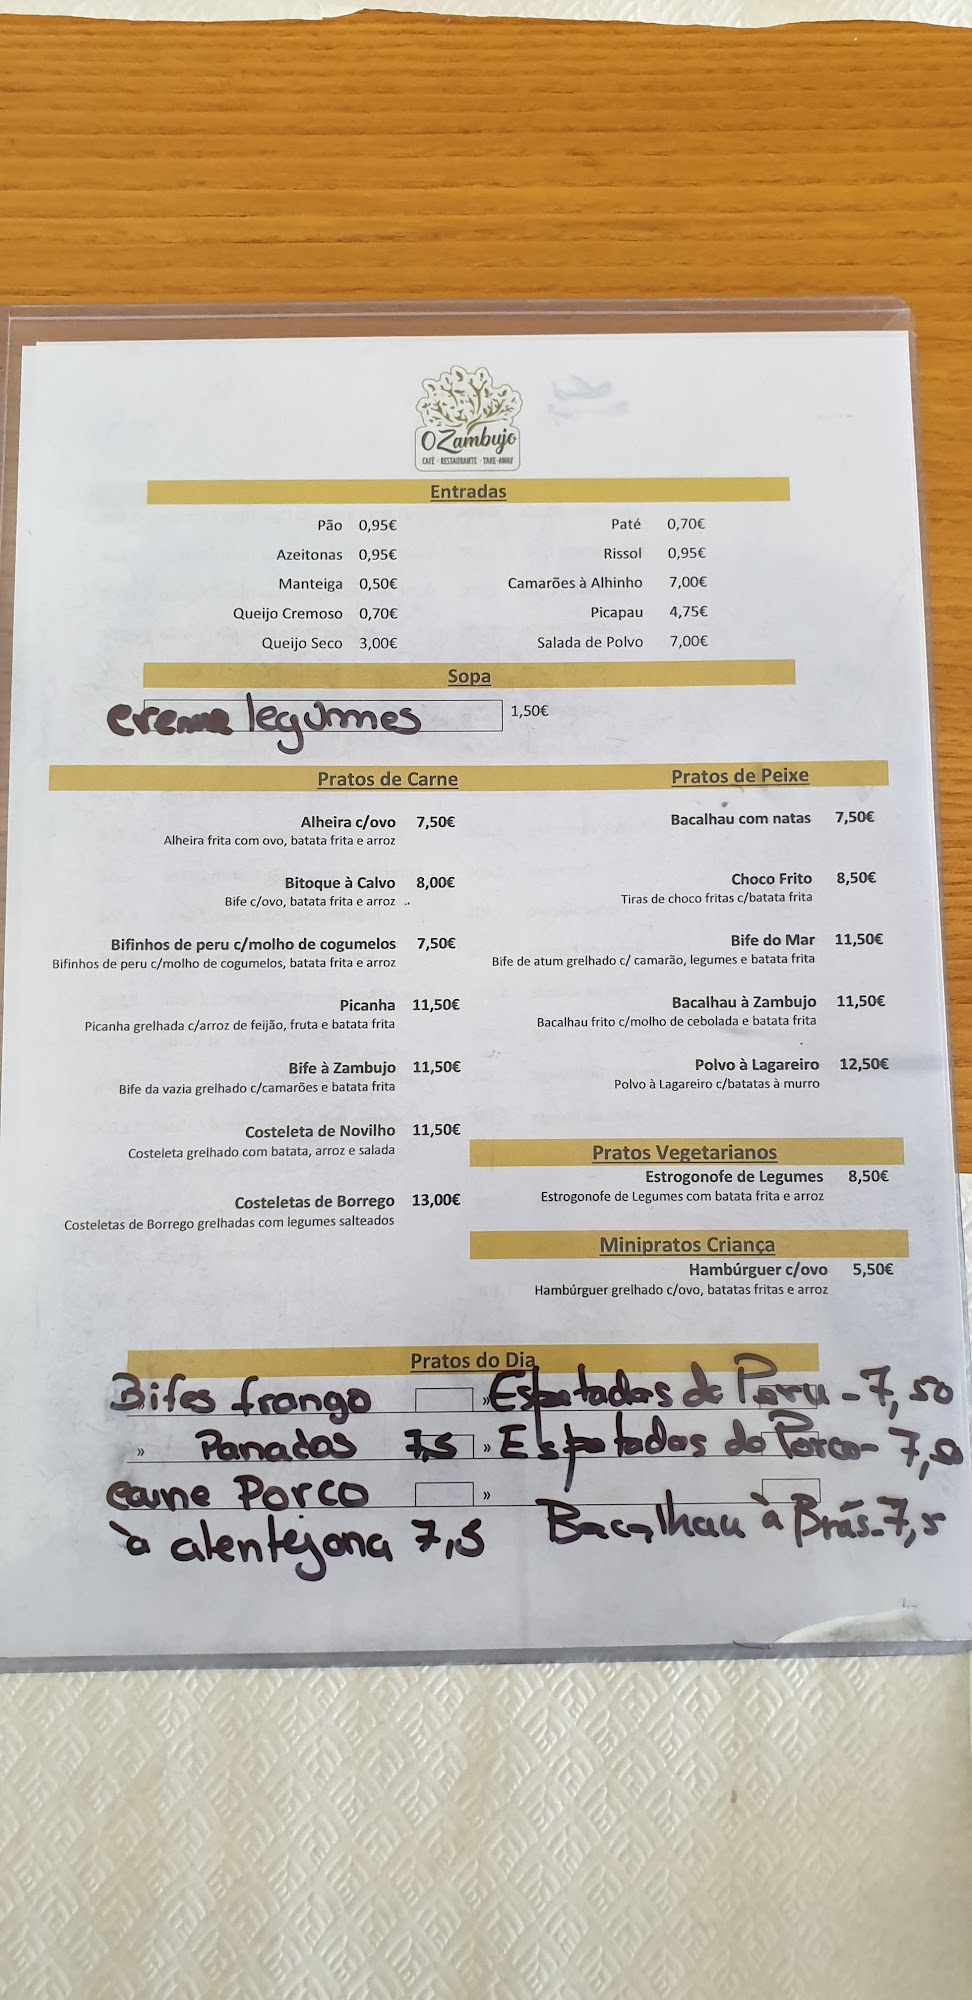 O Zambujo
CAFÉ - RESTAURANTE - TAKE-AWAY
Entradas
Pão 0,95€
Azeitonas 0,95€
Manteiga 0,50€
Queijo Cremoso 0,70€
Queijo Seco 3,00€
Paté 0,70€
Rissol 0,95€
Camarões à Alhinho 7,00€
Picapau 4,75€
Salada de Polvo 7,00€
Sopa
creme legumes 1,50€
Pratos de Carne
Alheira c/ovo 7,50€
Alheira frita com ovo, batata frita e arroz
Bitoque à Calvo 8,00€
Bife c/ovo, batata frita e arroz ..
Bifinhos de peru c/molho de cogumelos 7,50€
Bifinhos de peru c/molho de cogumelos, batata frita e arroz
Picanha 11,50€
Picanha grelhada c/arroz de feijão, fruta e batata frita
Bife à Zambujo 11,50€
Bife da vazia grelhado c/camarões e batata frita
Costeleta de Novilho 11,50€
Costeleta grelhado com batata, arroz e salada
Costeletas de Borrego 13,00€
Costeletas de Borrego grelhadas com legumes salteados
Pratos de Peixe
Bacalhau com natas 7,50€
Choco Frito 8,50€
Tiras de choco fritas c/batata frita
Bife do Mar 11,50€
Bife de atum grelhado c/ camarão, legumes e batata frita
Bacalhau à Zambujo 11,50€
Bacalhau frito c/molho de cebolada e batata frita
Polvo à Lagareiro 12,50€
Polvo à Lagareiro c/batatas à murro
Pratos Vegetarianos
Estrogonofe de Legumes 8,50€
Estrogonofe de Legumes com batata frita e arroz
Minipratos Criança
Hambúrguer c/ovo 5,50€
Hambúrguer grelhado c/ovo, batatas fritas e arroz
Pratos do Dia
Bifes frango
» Panados 7,5
carne Porco
à alentejana 7,5
» Espetadas de Peru - 7,50
» Espetadas de Porco - 7,50
»
Bacalhau à Brás - 7,5